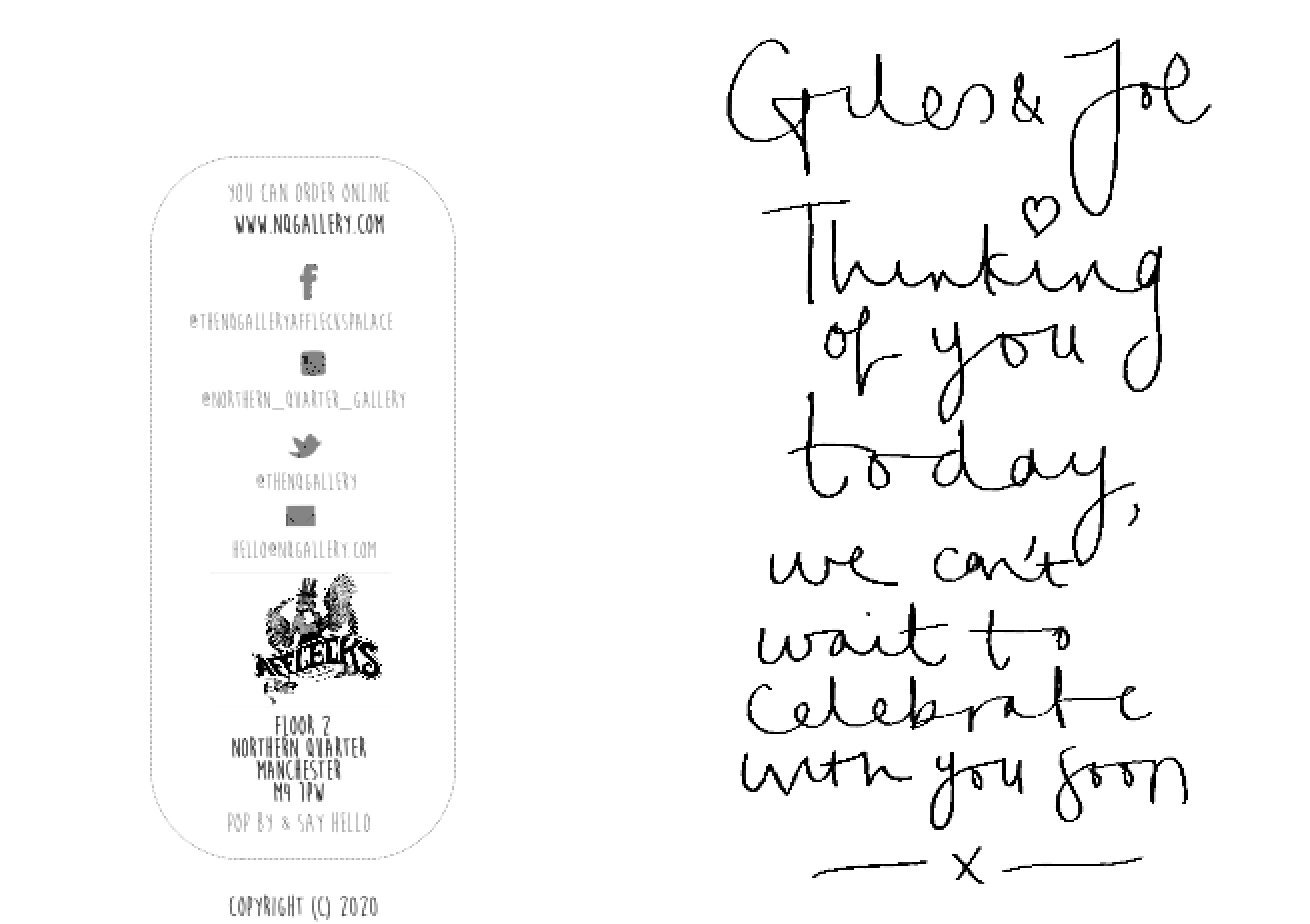 YOU CAN ORDER ONLINE
WWW.NQGALLERY.COM
@THENQGALLERYAFFLECKSPALACE
@NORTHERN_QUARTER_GALLERY
@THENQGALLERY
HELLO@NQGALLERY.COM
AFFLECKS
FLOOR 2
NORTHERN QUARTER
MANCHESTER
M4 1PW
POP BY & SAY HELLO
COPYRIGHT (C) 2020
Giles & Joe
Thinking
of you
today,
we can't
wait to
Celebrate
with you soon
x